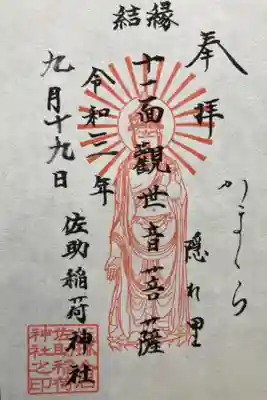 結縁
奉拝
かまくら
隠れ里
十一面觀世音菩薩
令和三年
九月十九日
佐助稲荷神社
佐助稲荷
神社之印